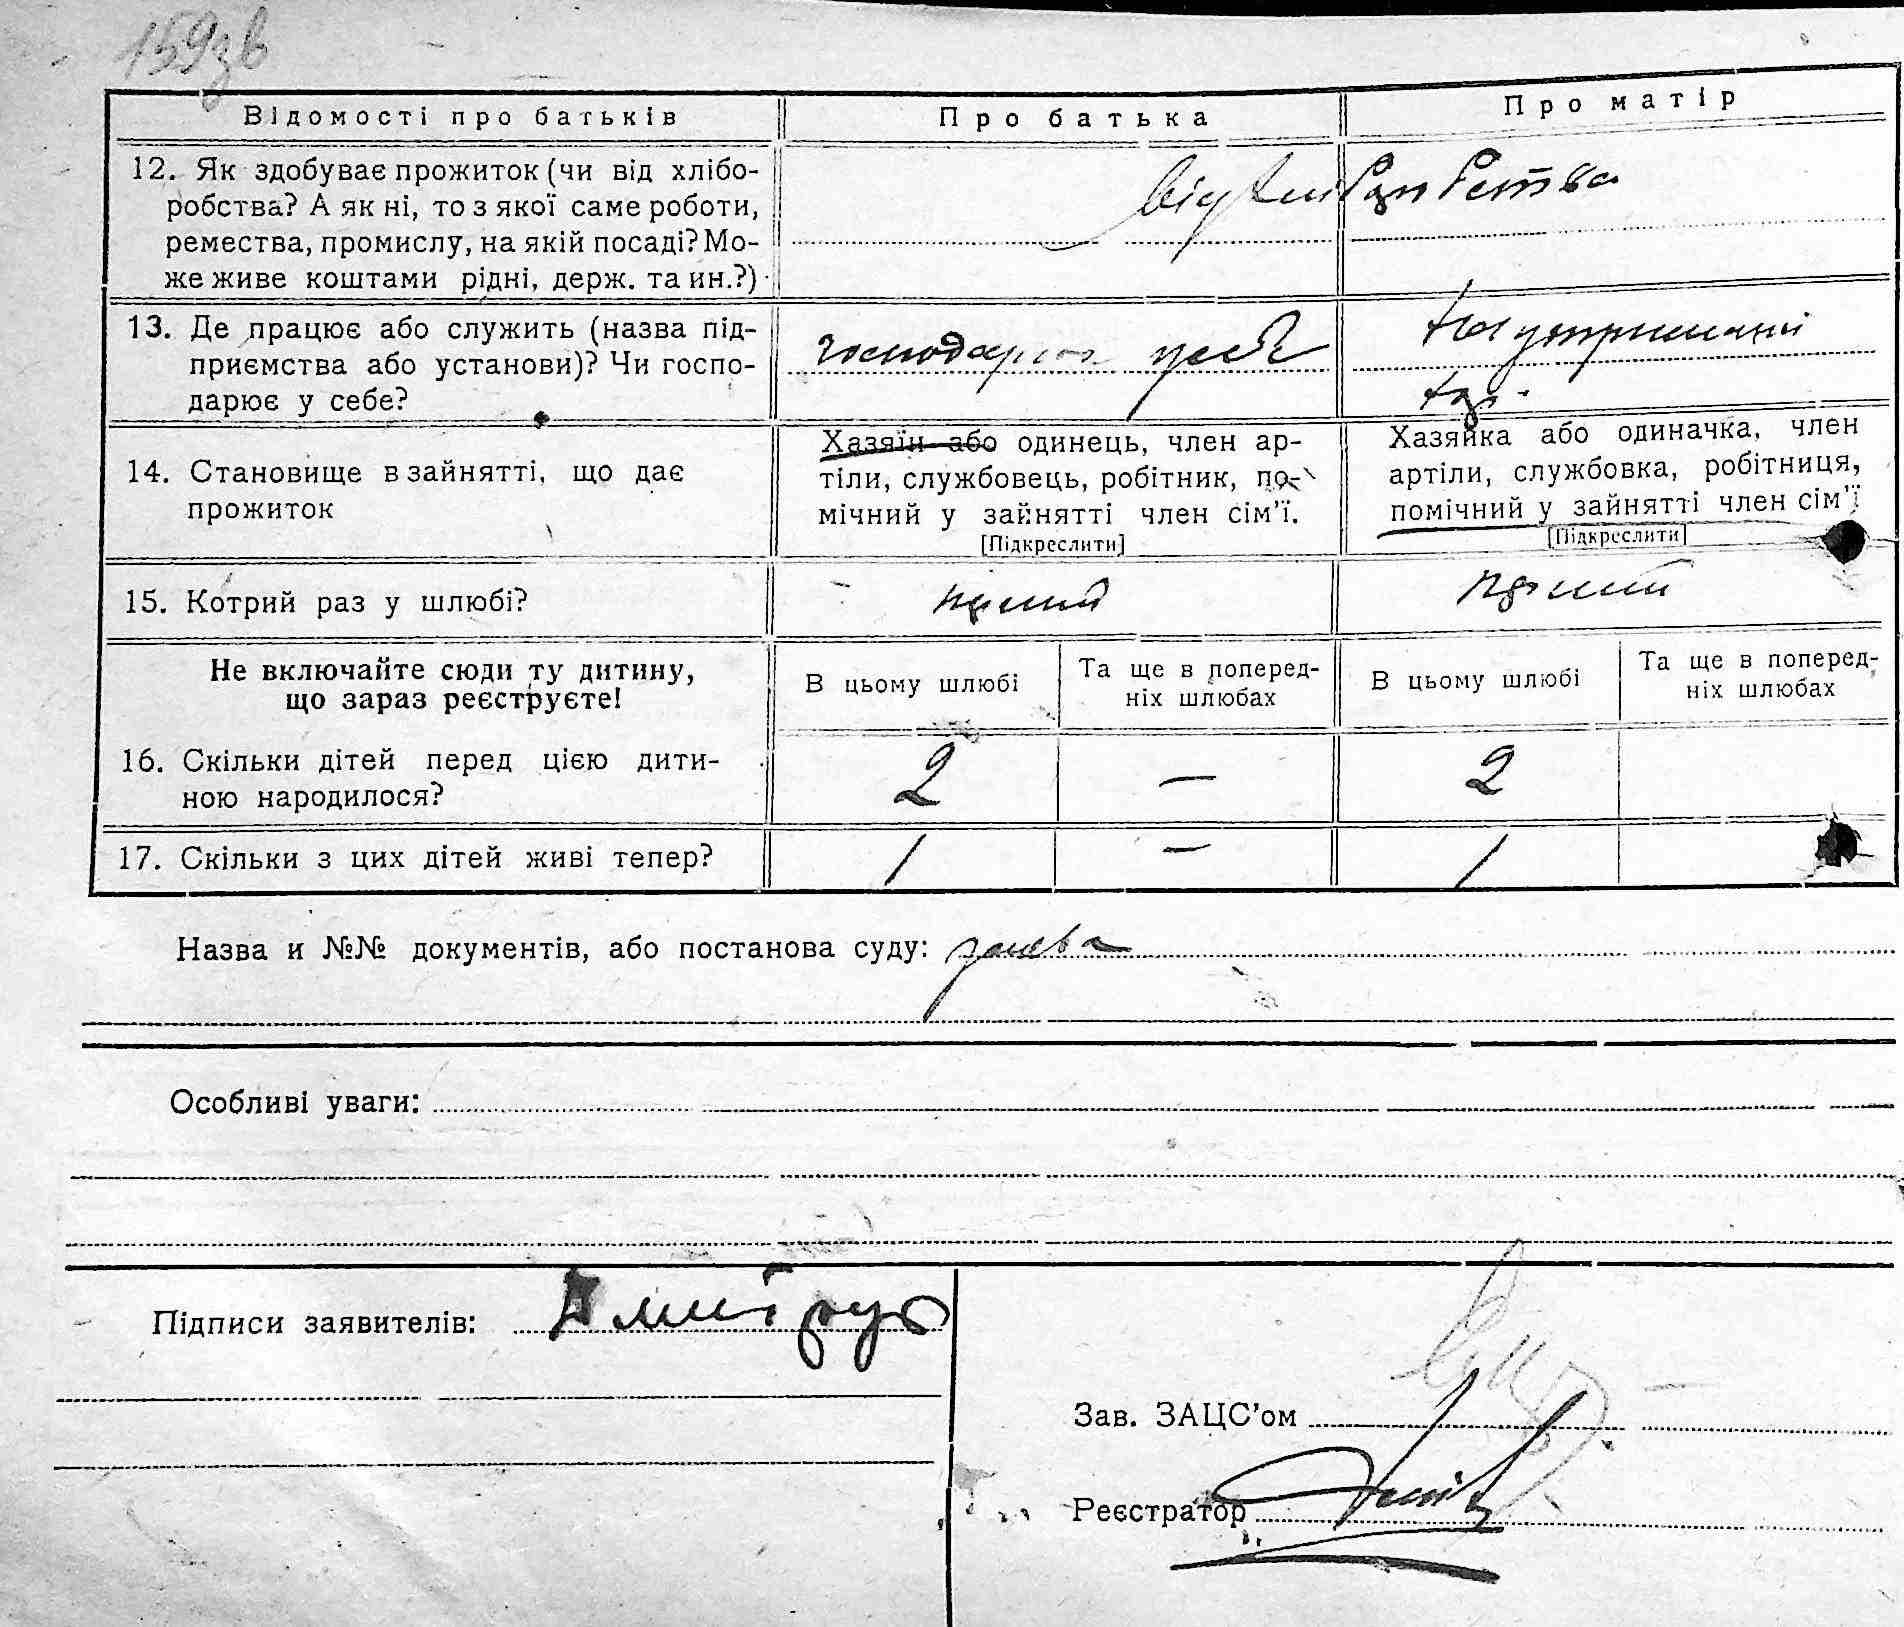 159зв
Відомості про батьків
Про батька
Про матір
12. Як здобуває прожиток (чи від хлібо-
робства? А як ні, то з якої саме роботи,
ремества, промислу, на якій посаді? Мо-
же живе коштами рідні, держ. та ин.?)
від хліборобства
13. Де працює або служить (назва під-
приємства або установи)? Чи госпо-
дарює у себе?
господарює у себе
На утриманні
14. Становище в зайнятті, що дає
прожиток
Хазяїн або одинець, член ар-
тіли, службовець, робітник, по-
мічний у зайнятті член сім'ї.
[Підкреслити]
Хазяйка або одиначка, член
артіли, службовка, робітниця,
помічний у зайнятті член сім'ї
[Підкреслити]
15. Котрий раз у шлюбі?
перший
перший
Не включайте сюди ту дитину,
що зараз реєструєте!
В цьому шлюбі
Та ще в поперед-
ніх шлюбах
В цьому шлюбі
Та ще в поперед-
ніх шлюбах
16. Скільки дітей перед цією дити-
ною народилося?
2
—
2
17. Скільки з цих дітей живі тепер?
1
—
1
Назва и №№ документів, або постанова суду: заява
Особливі уваги:
Підписи заявителів:
Зав. ЗАЦС'ом
Реєстратор